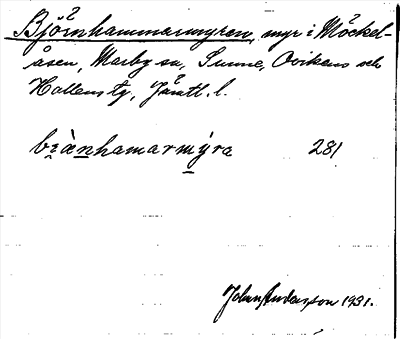 Björnhammarmyren, myr i Möckel-
åsen, Marby sn, Sunne, Ovikens och
Hallens tg, Jämtl. l.
bi̯ànhamarmýra 281
Johan Andersson 1931.